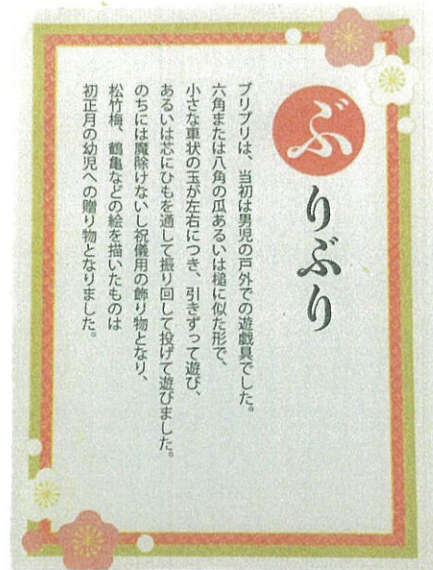 ぶりぶり
ブリブリは、当初は男児の戸外での遊戯具でした。
六角または八角の瓜あるいは槌に似た形で、
小さな車状の玉が左右につき、引きずって遊び、
あるいは芯にひもを通して振り回して投げて遊びました。
のちには魔除けないし祝儀用の飾り物となり、
松竹梅、鶴亀などの絵を描いたものは
初正月の幼児への贈り物となりました。